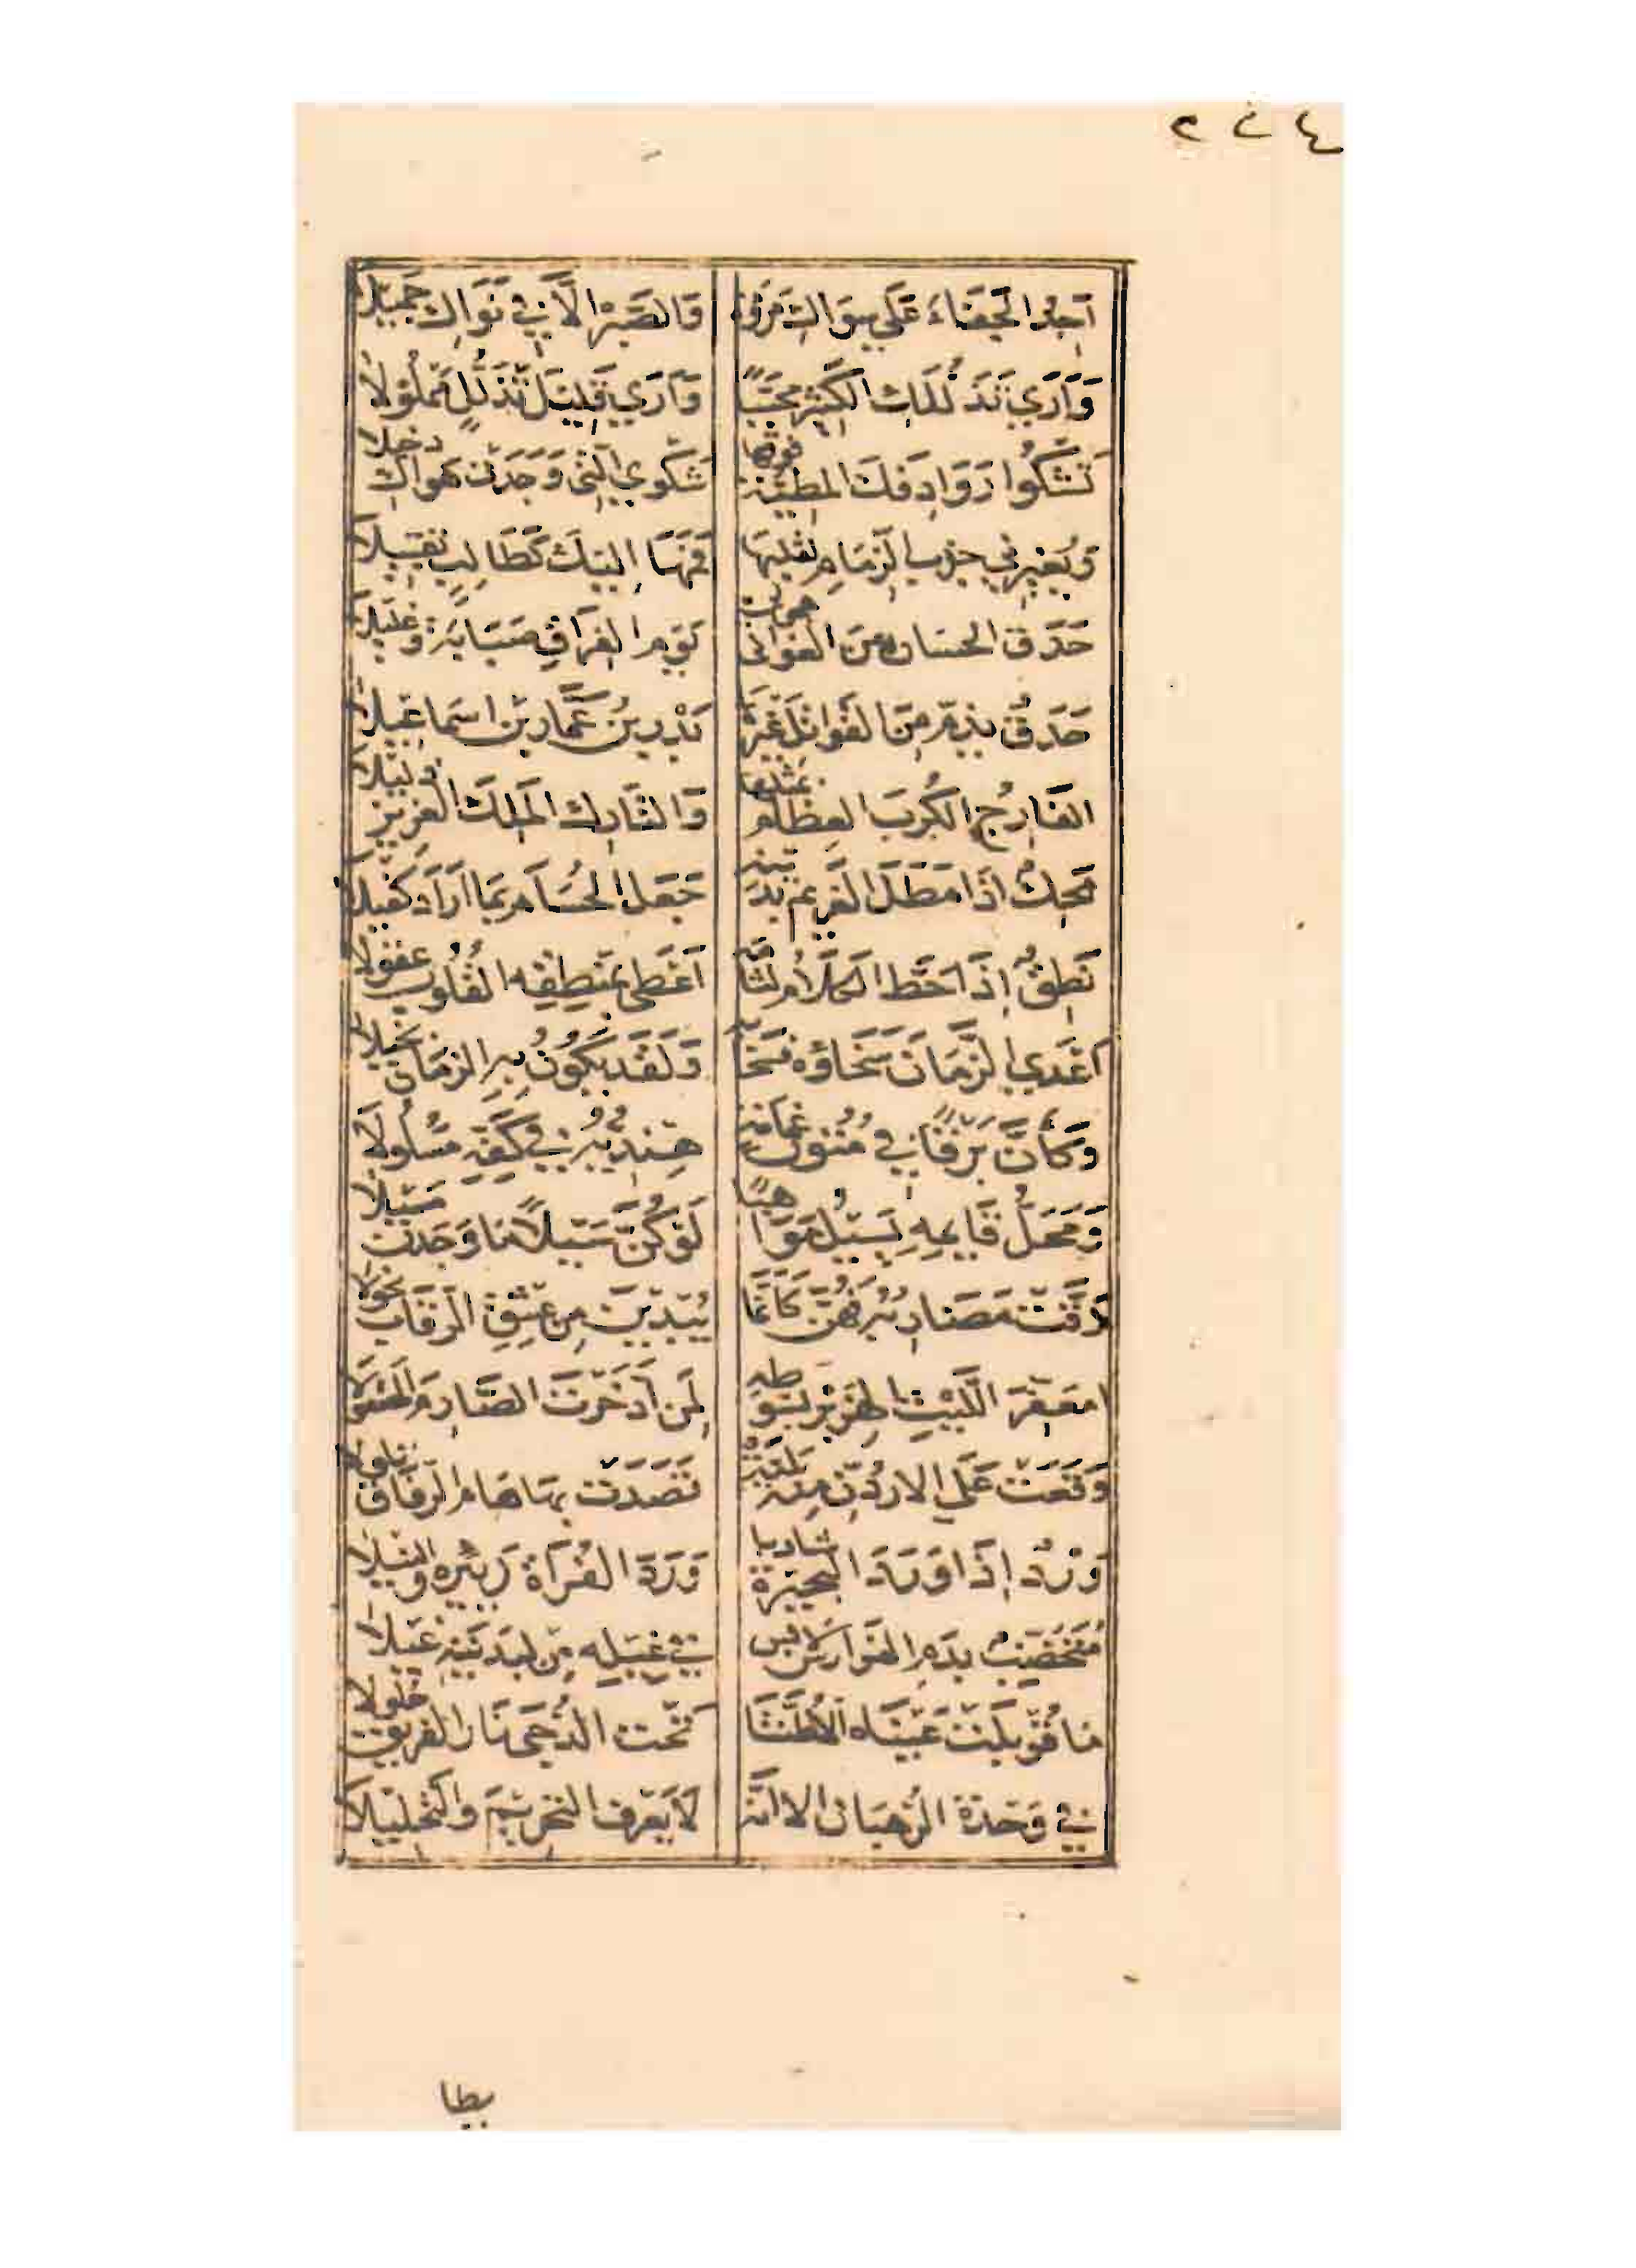 أجد الجفاء على سواك مروة والصبر إلا في نواك جميلا
وأرى تدللك الكثير محببا وأرى قليل تذلل مملولا
تشكوا روادفك المطية فوقها شكوي التي وجدت هواك دخيلا
ويغيرني جذب الزمام لقلبها فمها إليك كطالب تقبيلا
حدق الحسان من الغواني هجن لي يوم الفراق صبابة وغليلا
حدق يذم من القواتل غيرها بدر بن عمار بن اسماعيلا
الفارج الكرب العظام بمثلها والتارك الملك العزيز ذليلا
محك اذا مطل الغريم بدينه جعل الحسام بما أراد كفيلا
نطق إذا حط الكلام لثامه أعطى بمنطقه القلوب عقولا
أعدي الزمان سخاؤه فسخا به ولقد يكون به الزمان بخيلا
وكأن برقا في متون غمامة هنديه في كفه مسلولا
ومحل قايمه يسيل مواهبا لو كن سيلا ما وجدن مسيلا
رقت مضاربه فهن كأنما يبدين من عشق الرقاب نحولا
امعفر الليث الهزبر بسوطه لمن ادخرت الصارم المصقولا
وقعت على الاردن منه بلية نضدت بها هام الرفاق تلولا
ورد إذا ورد البحيرة شاربا ورد الفراة زئيره والنيلا
متخضب بدم الفوارس لابس في غيله من لبدتيه غيلا
ما قوبلت عيناه الا ظنتا تحت الدجى نار الفريق حلولا
في وحدة الرهبان الا أنه لا يعرف التحريم والتحليلا
يطا